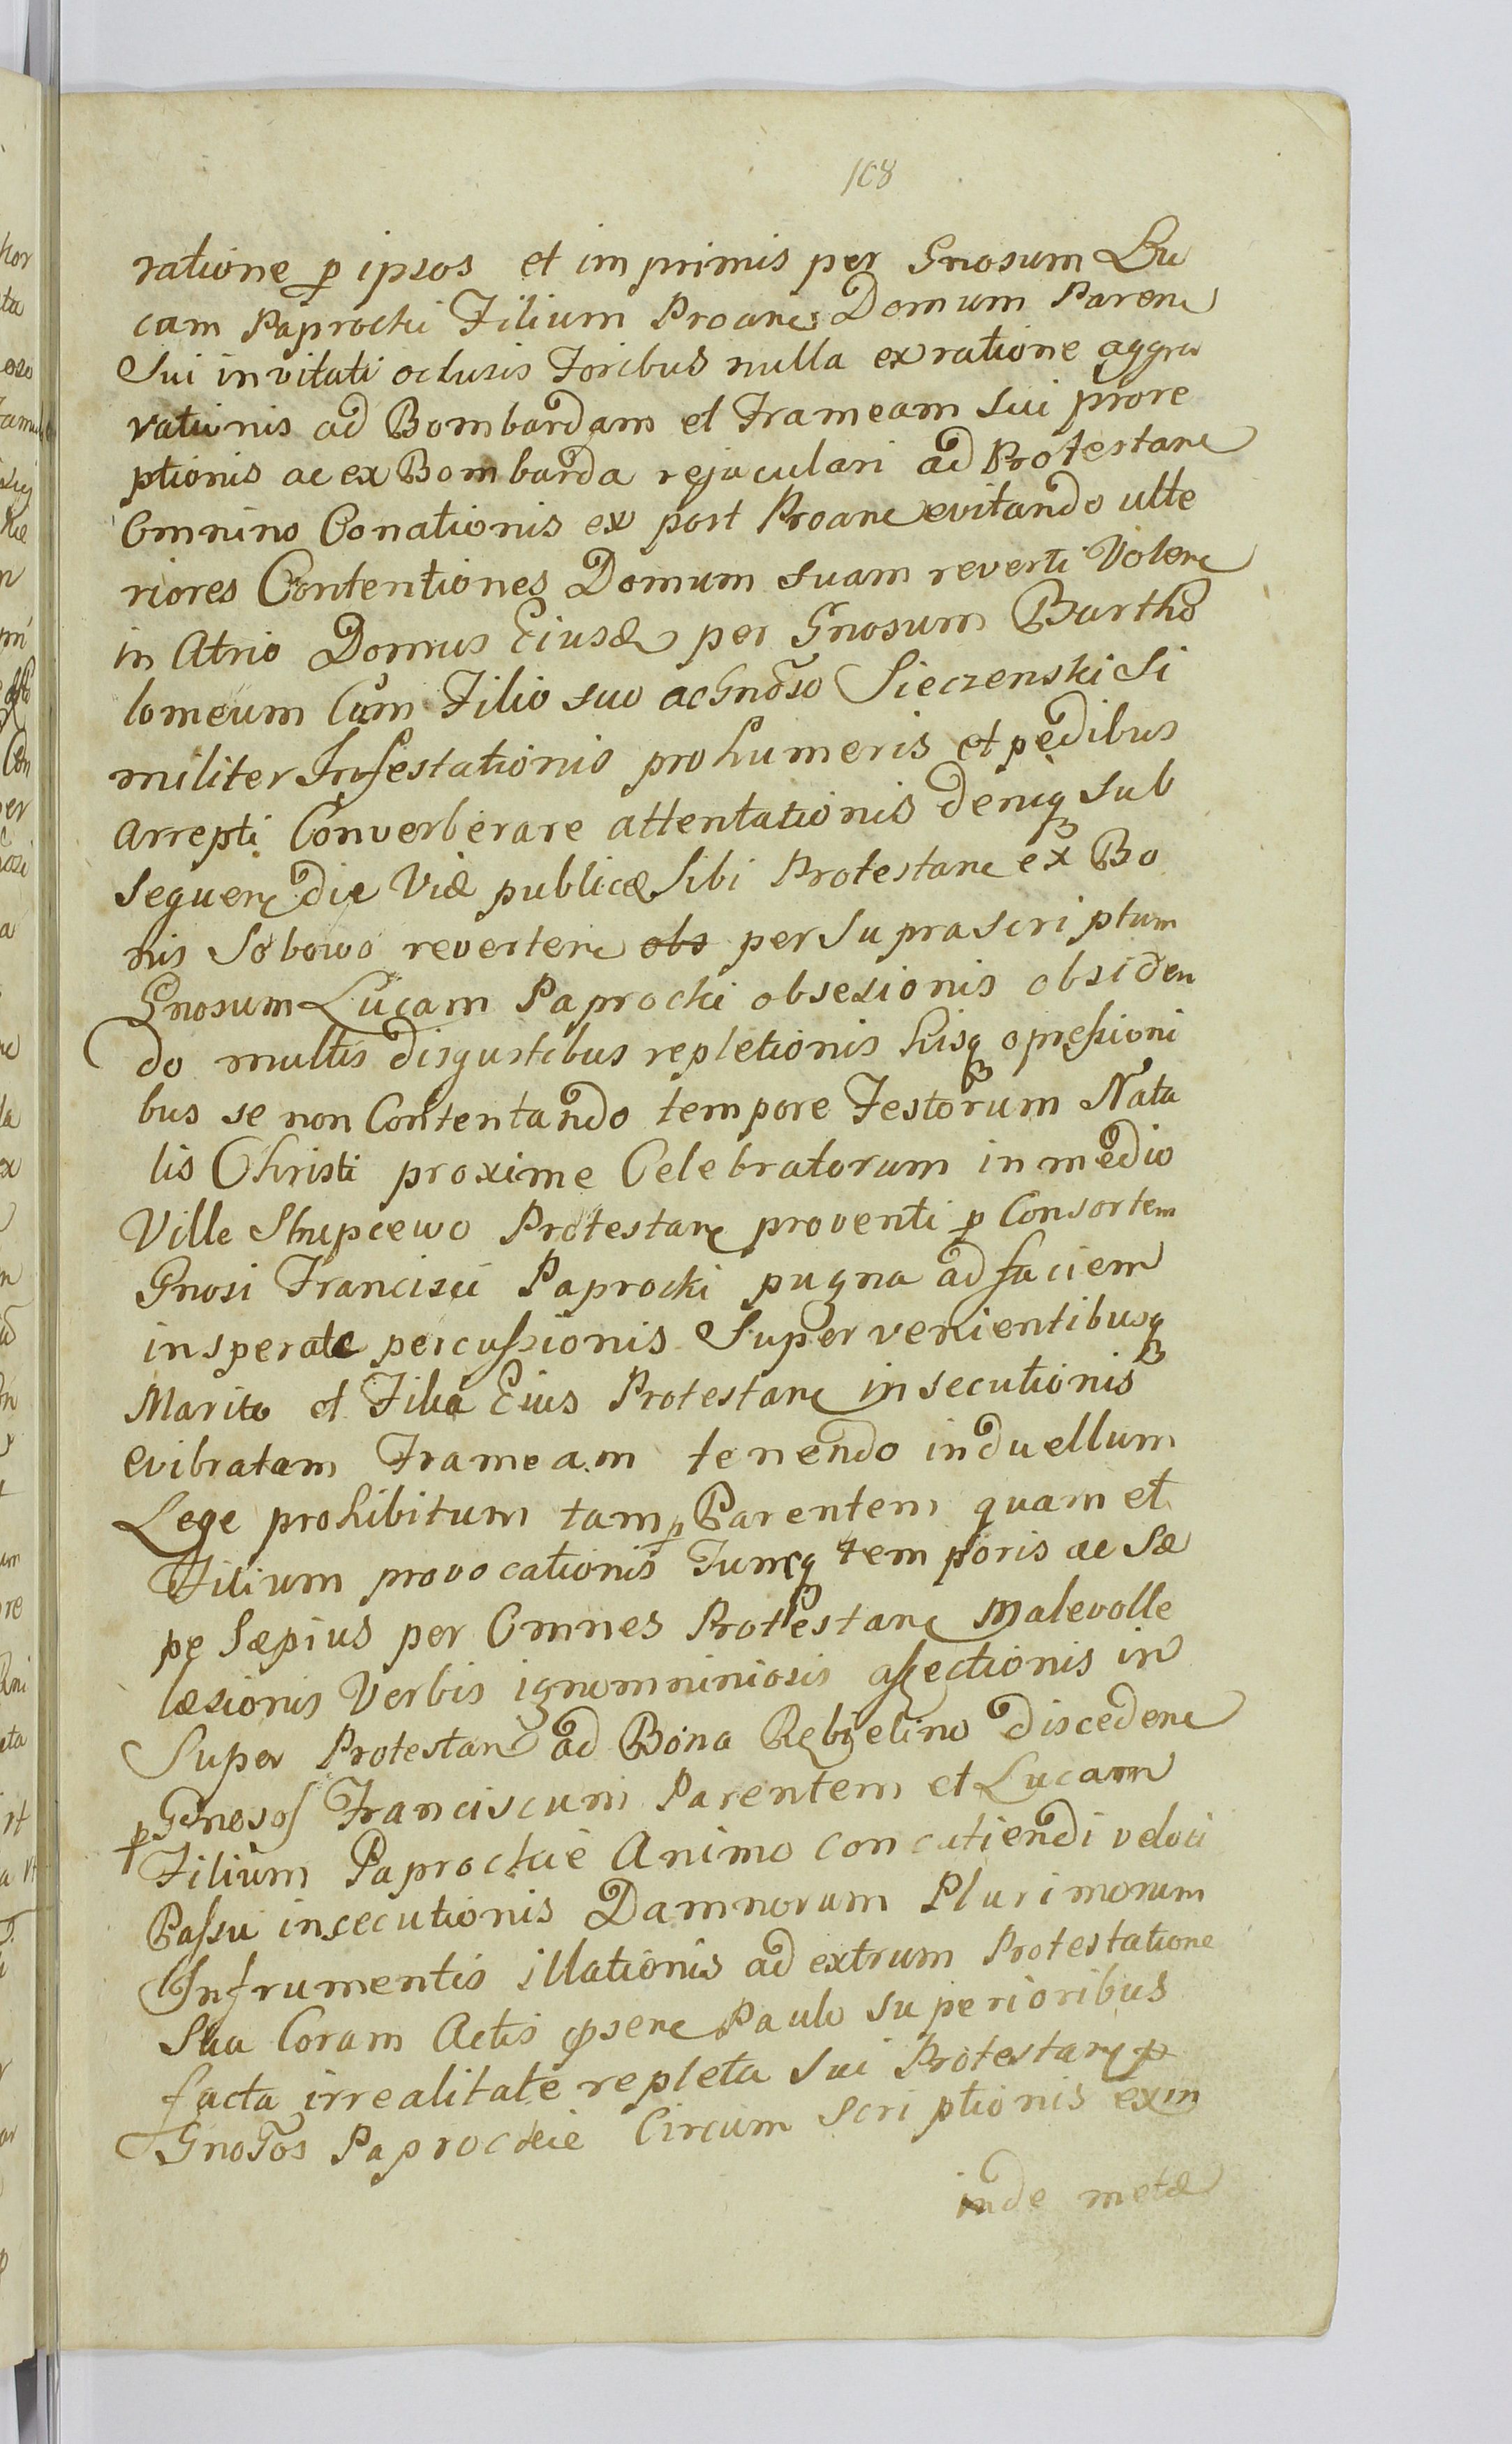 108
ratione p ipsos et imprimis per Gnosum Lu
cam Paprocki Filium Proane Domum Paren
Sui invitati oclusis Foribus nulla ex ratione aggra
vationis ad Bombardam et Frameam sui prore
ptionis ac ex Bombarda rejaculari ad Protestane
Omnino Conationis ex post Proane evitando ulte
riores Contentiones Domum suam reverti Volene
in Atrio Domus Eiusd per Gnosum Bartho
lomeum Cum Filio suo ac Gnoso Sieczenski Si
militer Infestationis pro humeris et pedibus
arrepti Converberare attentationis deniq sub
sequene die Viæ publicæ Sibi Protestane ex Bo
nis Sobowo revertene obs per suprascriptum
Gnosum Lucam Paprocki obsesionis obsiden
do multis disgustibus repletionis hisq opressioni
bus se non Contentando tempore Festorum Nata
lis Christi proxime Celebratorum in medio
Ville Stupcewo Protestane proventi p Consortem
Gnosi Francisci Paprocki pugna ad faciem
insperate percussionis Supervenientibusq
Marito et Filia Eius Protestane insecutionis
evibratam Frameam tenendo in duellum
Lege prohibitum tam p Parentem quam et
Filium provocationis Tuncq temporis ac Sæ
pe Sæpius per Omnes Protestane malevolle
læsionis Verbis ignominiosis affectionis in
Super Protestan ad Bona Rębielino discedene
p Gnosos Franciscum Parentem et Lucam
Filium Paprockie Animo concutiendi veloci
Passu insecutionis Damnorum Plurimorum
In frumentis illationis ad extrum Protestatione
Sua Coram Actis psene Paulo superioribus
facta irrealitate repleta sui Protestane p
Gnosos Paprockie Circumscriptionis exin
inde metæ